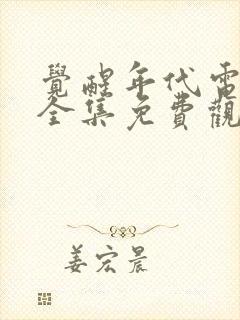 覺醒年代電
全集免費觀
姜宏晨